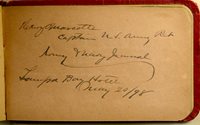 Captain U.S. Army Ret
Army & Navy Journal
Tampa Bay Hotel
May 20/98